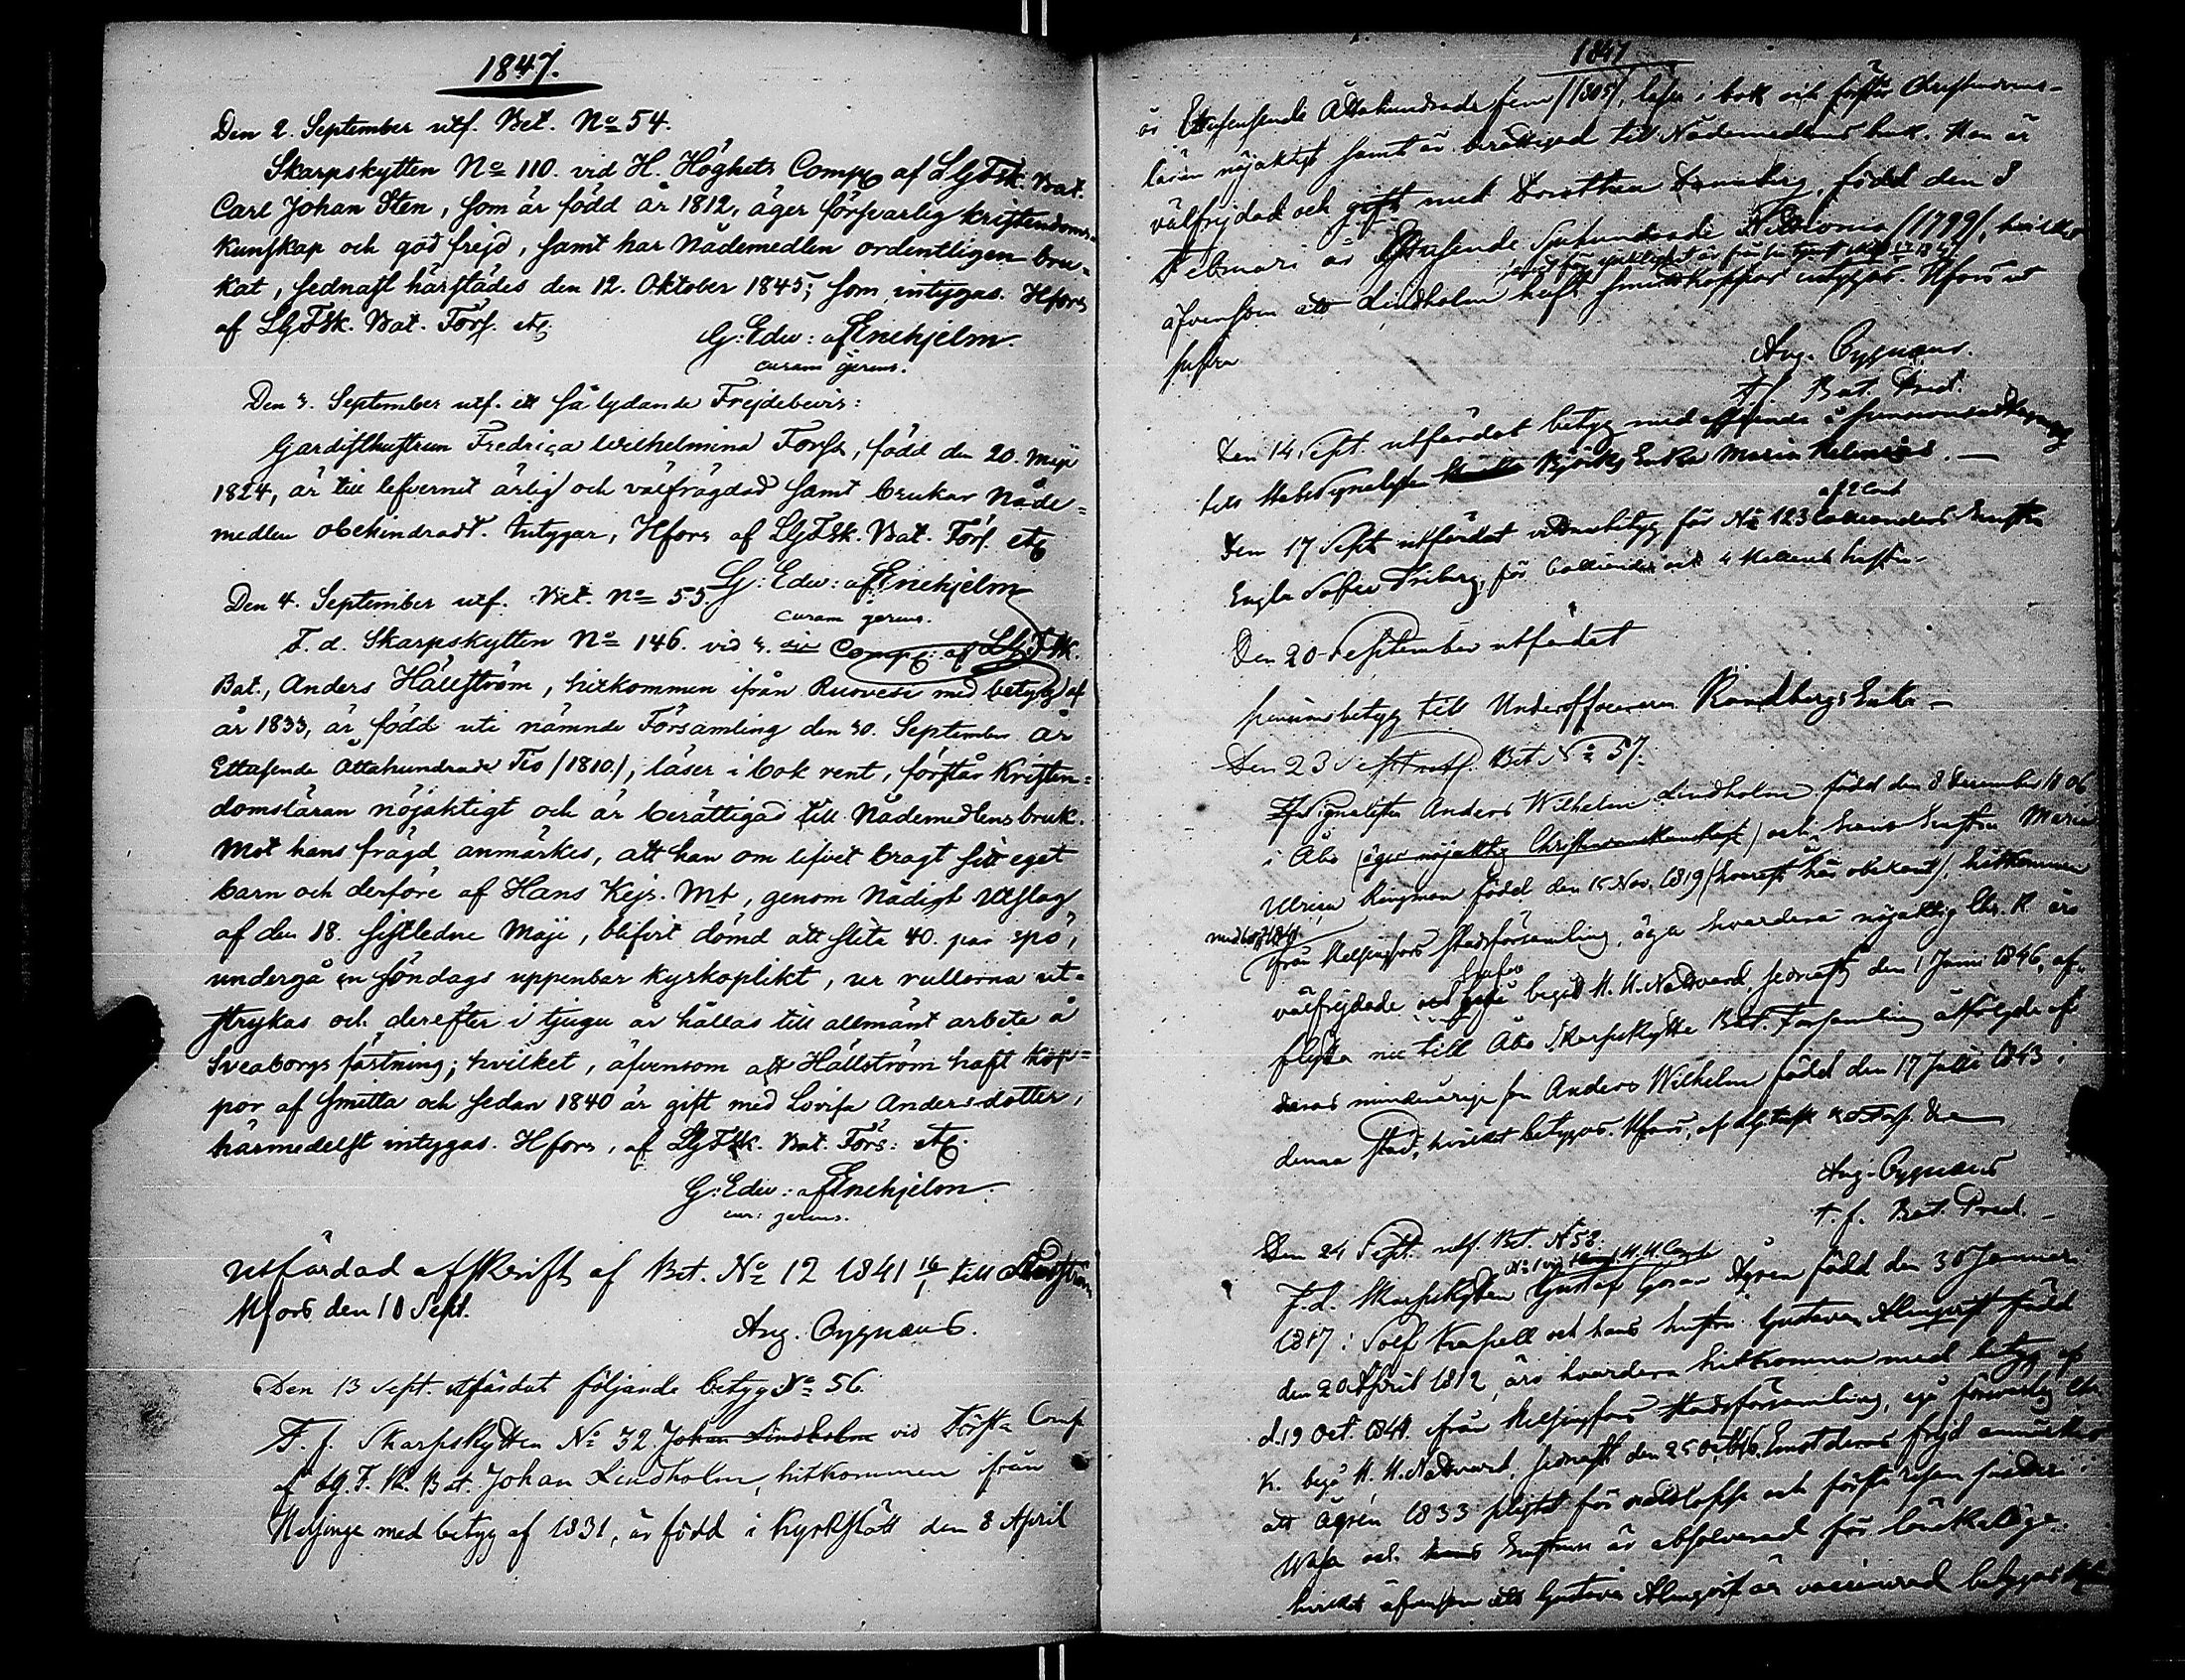 1847.
Den 2. September utf. Bet. No 54.
Skarpskytten No 110. vid H. Höghets Comp af LGFSk. Bat.
Carl Johan Sten, som är född år 1812, äger försvarlig kristendoms-
kunskap och god frejd, samt har Nådemedlen ordentligen bru-
kat, sednast härstädes den 12. Oktober 1845; som intygas. Hfors
af LGFSk. Bat. Förs. etc
G: Edw: af Enehjelm.
curam gerens.
Den 3. September utf. ett så lydande Frejdebevis:
Gardisthustrun Fredrica Wilhelmina Forss, född den 20. Maji
1824, är till lefvernet ärlig och välfrägdad samt brukar Nåde-
medlen obehindradt. Intygar, Hfors af LGFSk. Bat. Förs. etc
G: Edw: af Enehjelm
curam gerens.
Den 4. September utf. Bet. No 55.
F. d. Skarpskytten No 146. vid 3. die Comp: af LGFSk.
Bat., Anders Hällström, hitkommen ifrån Ruovesi med betyg af
år 1833, är född uti nämnde Församling den 30. September år
Ettusende Åttahundrade Tio (1810), läser i bok rent, förstår Kristen-
domsläran nöjaktigt och är berättigad till Nådemedlens bruk.
Mot hans frägd anmärkes, att han om lifvet bragt sitt eget
barn och derföre af Hans Kejs. Mt, genom Nådigt Utslag
af den 18. sistledne Maji, blifvit dömd att slita 40. par spö,
undergå en söndags uppenbar kyrkoplikt, ur rullorna ut-
strykas och derefter i tjugu år hållas till allmänt arbete å
Sveaborgs fästning; hvilket, äfvensom att Hällström haft kop-
por af smitta och sedan 1840 är gift med Lovisa Andersdotter,
härmedelst intygas. Hfors, af LGFSk. Bat. Förs: etc.
G: Edw: af Enehjelm.
cur: gerens.
Utfärdad afskrift af Bet. No 12 1841 16/1 till
Hfors den 10 Sept.
Aug. Cygnæus.
Den 13 Sept. utfärdat följande betyg No 56.
F. f. Skarpskytten No 32 Johan Lindholm vid Första Comp
af LG. F. Sk. Bat. Johan Lindholm, hitkommen ifrån
Helsinge med betyg af 1831, är född i Kyrkslätt den 8 April
1847
år Ettusende Åttahundrade fem (1805), läser i bok och förstår Christendoms-
läran nöjaktigt samt är berättigad till Nådemedlens bruk. Han är
välfrejdad och gift med Dorothea, född den 8
Februari år Ettusende Sjuhundrade Nittionio (1799), hvilket
äfvensom att Lindholm haft smittkoppor intygas. Hfors ut
supra
Aug. Cygnæus.
t. f. Bat. Pred.
Den 14 Sept. utfärdat betyg med afseende å
till Björks Enka Maria Helenius. —
af 2 Comp
Den 17 Sept utfärdat för No 123 hustru
Engla Sofia Friberg, för
Den 20 September utfärdat
pensionsbetyg till Underofficeren Randbergs Enka —
Den 23 Sept utf. Bet No 57.
Signalisten Anders Wilhelm Lindholm född den 8 December 1806
i Åbo (äger nöjaktig Christendomskunskap) och hans hustru Maria
Ulrica Ringman född den 15 Nov. 1819 (hvarest här obekant), hitkommen
med betyg 1841
från Helsingfors stadsförsamling, äga hvardera nöjaktig Chr. K. äro
välfrejdade begått H. H. Nattvard sednast den 1 Juni 1846, af-
flytta nu till Åbo Skarpskytte Bat. Församling åtföljde af
deras minderårige son Anders Wilhelm född den 17 Juli 1843 i
denna stad, hvilket betygas. Hfors, af
Aug. Cygnæus
t. f. Bat. Pred. —
Den 24 Sept. utf. Bet. N 58.
No 1 vid H. H. Comp
F. d. Skarpskytten Gustaf Göran Ågren född den 30 Januari
1817 i Solf Kapell och hans hustru Gustava Almqvist född
den 20 April 1812, äro hvardera hitkomna med betyg af
d. 19 Oct. 1844 ifrån Helsingfors stadsförsamling, ega försvarlig Chr.
K. begå H. H. Nattvard, sednast den 25 Oct. 46. Emot deras frejd anmärkes
att Ågren 1833 pligtat för och första resan snatteri i
Wasa och hans hustru är absolverad för lönskaläge.
hvilket äfvensom att Gustava Almqvist är vaccinerad betygas Hfors